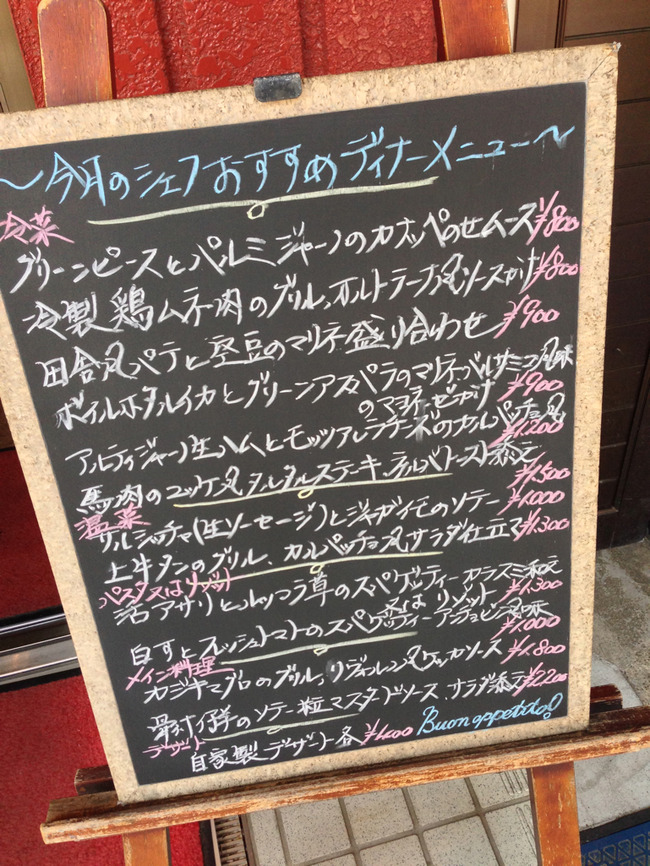 〜今月のシェフおすすめディナーメニュー〜
冷菜
グリーンピースとパルミジャーノのカナッペのせムース ¥800
冷製鶏ムネ肉のグリル、オルトラーナ風ソースがけ ¥800
田舎風パテと堅豆のマリネ盛り合わせ ¥900
ボイルホタルイカとグリーンアスパラのマリネ バルサミコ風味
のマヨネーゼがけ ¥900
アルティジャーノ生ハムとモッツァレラチーズのカルパッチョ風 ¥1,200
馬肉のユッケ風タルタルステーキ、ラルバトースト添え ¥1,500
温菜
サルシッチャ(生ソーセージ)とジャガイモのソテー ¥1,000
上牛タンのグリル、カルパッチョ風サラダ仕立て ¥1,300
パスタ又はリゾット
活アサリとルッコラ草のスパゲッティーカラスミ和え ¥1,300
又はリゾット
白すとフレッシュトマトのスパゲッティーアンチョビ風味 ¥1,000
メイン料理
カジキマグロのグリル、リヴォルノ風ケッカソース ¥1,800
骨付仔羊のソテー 粒マスタードソース、サラダ添え ¥2,200
デザート
自家製デザート各 ¥400 Buon appetito!